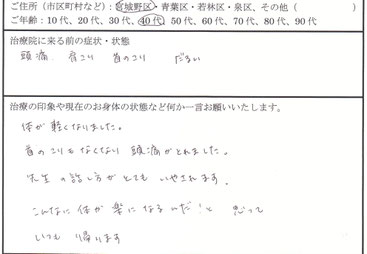 ご住所（市区町村など）：宮城野区・青葉区・若林区・泉区、その他（　　　　　）
ご年齢：10代、20代、30代、40代、50代、60代、70代、80代、90代
治療院に来る前の症状・状態
頭痛　肩こり　首のこり　だるい
治療の印象や現在のお身体の状態など何か一言お願いいたします。
体が軽くなりました。
首のこりもなくなり頭痛がとれました。
先生の話し方がとてもいやされます。
こんなに体が楽になるのだ！と思って
いつも帰ります